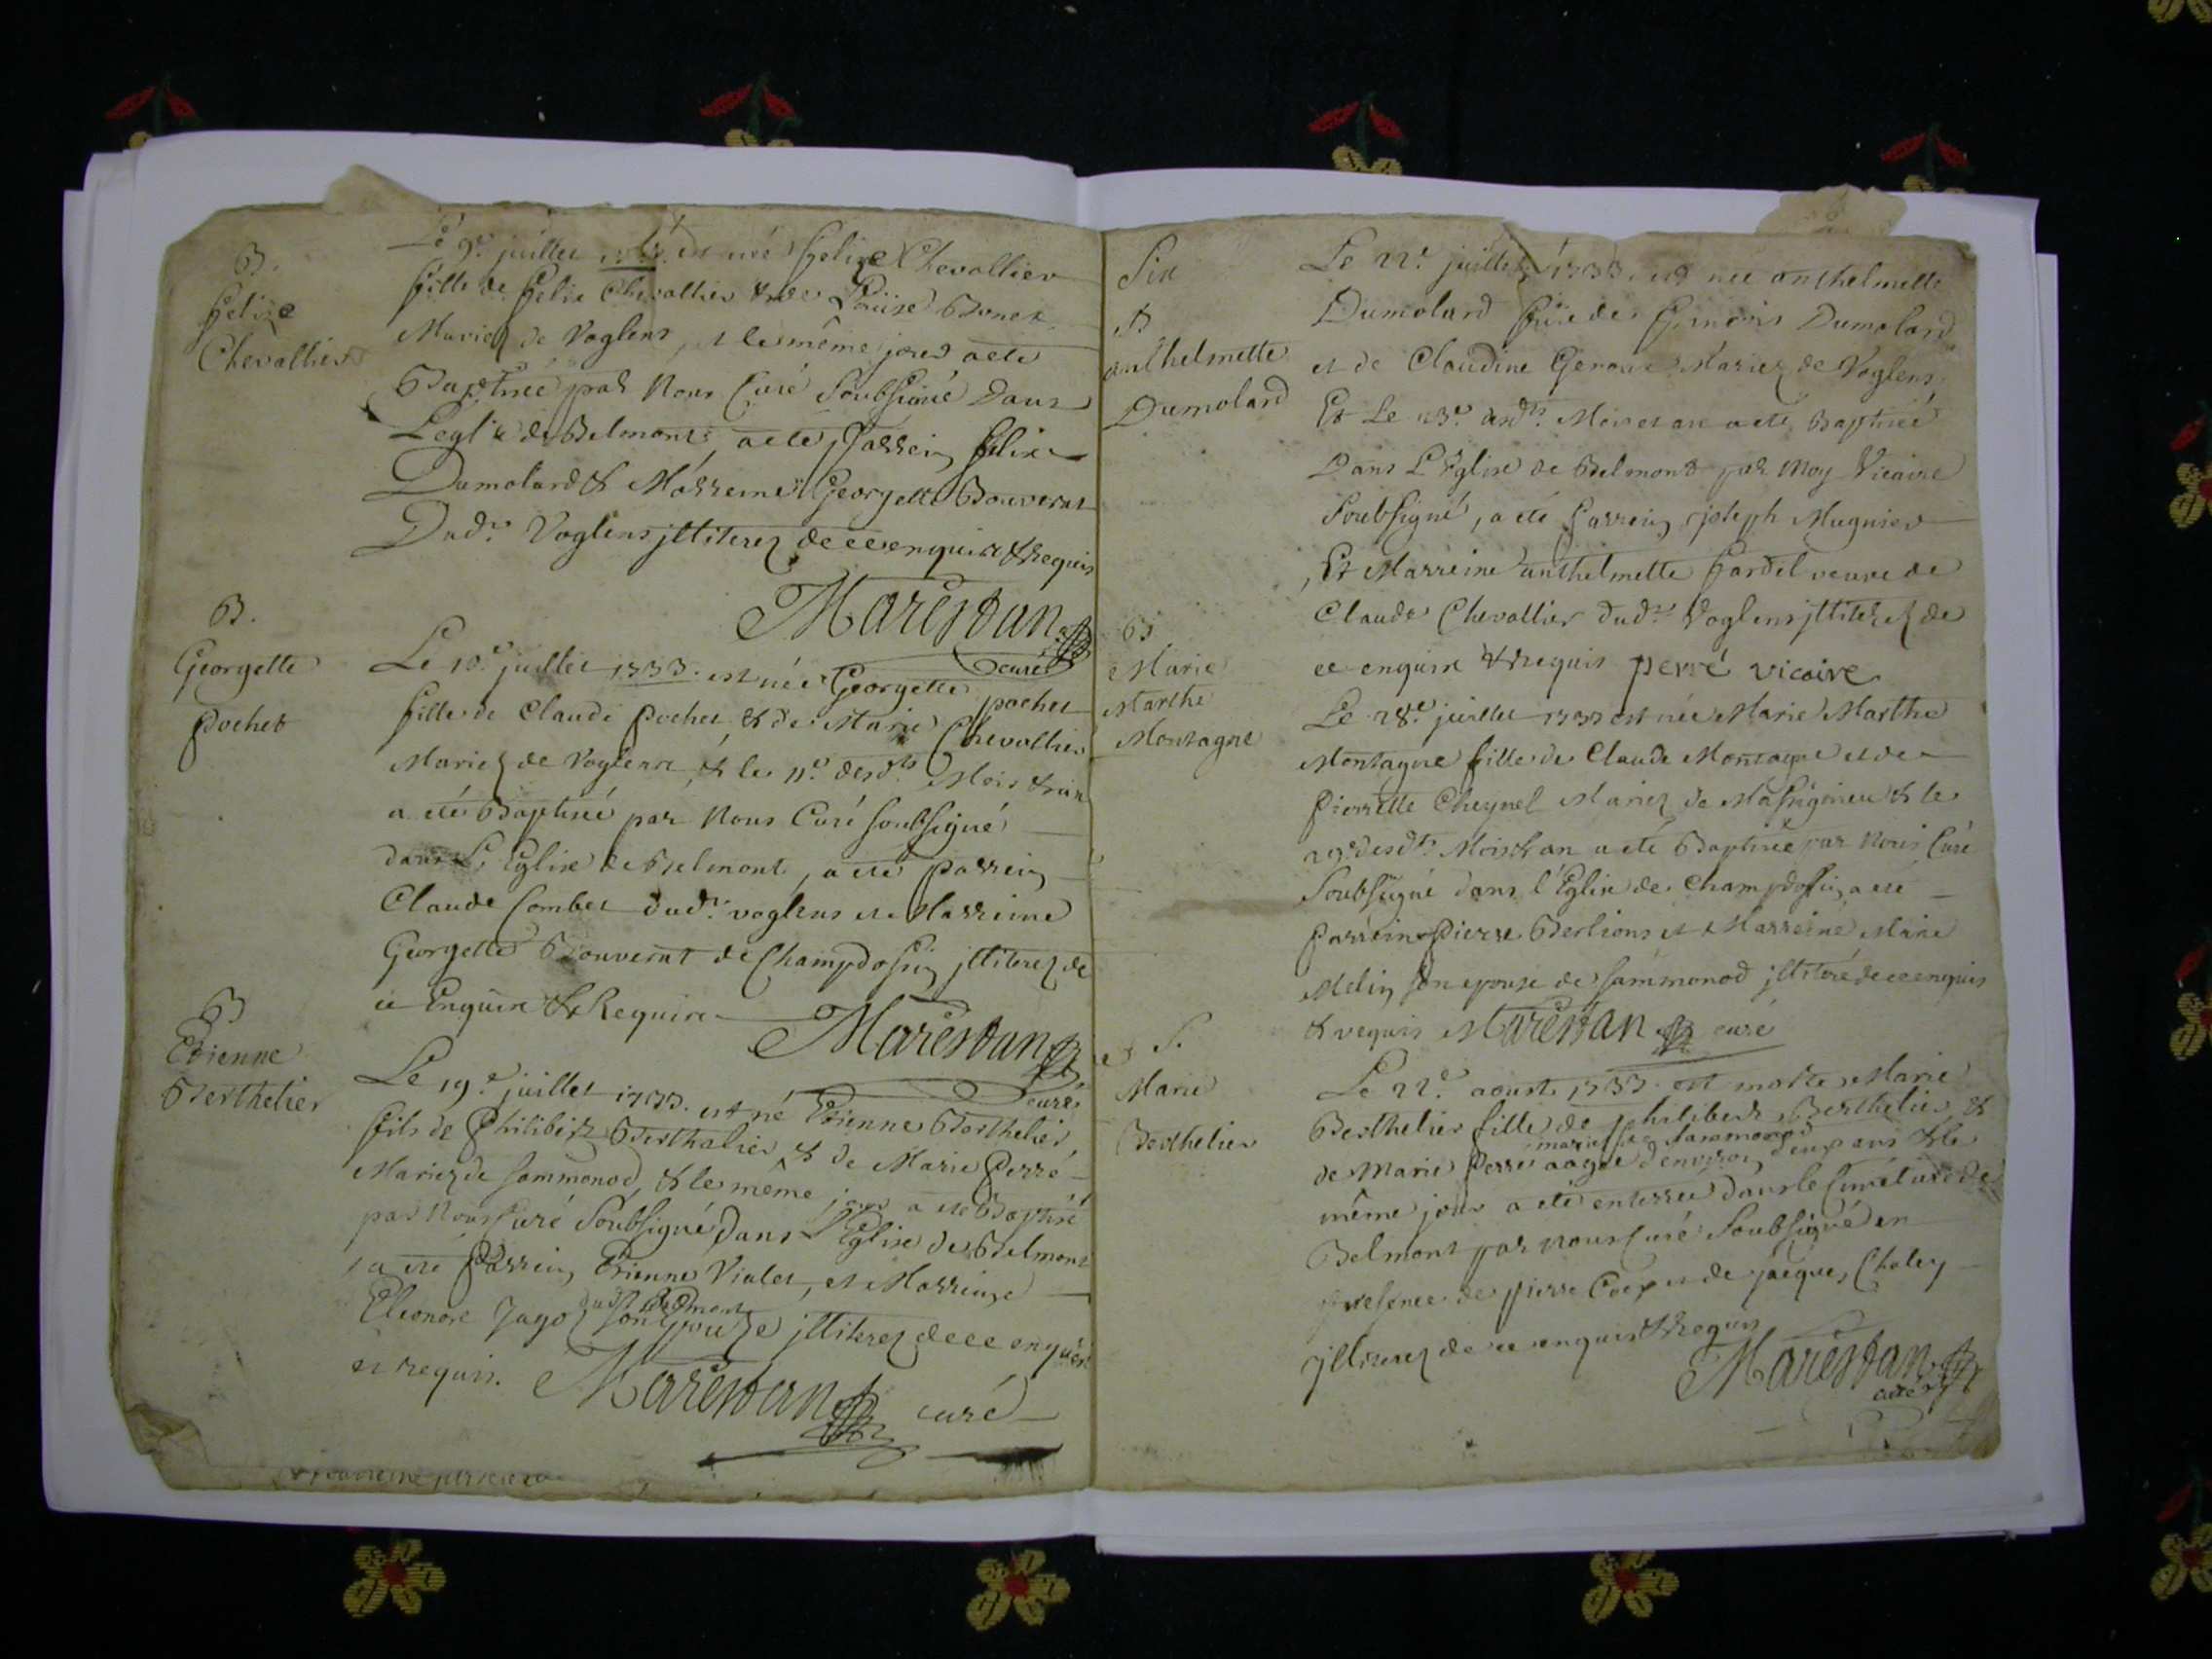 B.
Felize
Chevallier
Le 9.e juillet est née Felize Chevallier
fille de Felix Chevallier & de Louise Bonet
Mariez de Voglens, et le même jour a ete
Baptisée par Nous Curé Soubsigné Dans
L'eglise de Belmont, a ete Parrein Felix
Dumolard & Marreine Georgette Bouverat
Dud.t Voglens jlliterez de ce enquis & Requis
Marestan
curé
B.
Georgette
Pochet
Le 10.e juillet 1733. est née Georgette pochet
fille de Claude Pochet, & de Marie Chevallier
Mariez de Voglens, & le 11.e desd.ts Mois & an
a eté Baptisée par Nous Curé soubsigné
dans L'Eglise de Belmont, a ete parrein
Claude Combet dud.t voglens et Marreine
Georgette Bouverat de Champdosin jlliterez de
ce Enquire & Require
Marestan
curé
B
Etienne
Berthelier
Le 19.e juillet 1733. est né Etienne Berthelier
fils de Philibert Berthelier & de Marie Perré
Mariez de Sammonod, & le même jour a ete Baptisé
par Nous Curé Soubsigné Dans L'Eglise de Belmont
a eté Parrein Etienne Vialet, et Marreine
Eleonore Jagoz son Epouze dud.t Belmont jlliterez de ce enquis
et requis. Marestan curé
Six
B
anthelmette
Dumolard
Le 22.e juillet 1733. est née anthelmette
Dumolard fille de François Dumolard
et de Claudine Genoux Mariez de Voglens
Et Le 23.e and.ts Mois et an a eté Baptisée
Dans L'Eglise de Belmont par Moy Vicaire
Soubsigné, a eté Parrein joseph Mugnier
Et Marreine anthelmette Fardel veuve de
Claude Chevallier dud.t Voglens jlliterez de
ce enquis & Requis perré vicaire
B
Marie
Marthe
Montagne
Le 28.e juillet 1733 est née Marie Marthe
Montagne fille de Claude Montagne et de
Pierrette Cheynel Mariez de Massignieu & le
29.e desd.ts Mois & an a eté Baptisée par Nous Curé
Soubsigné dans l'Eglise de Champdosin, a eté
Parrein Pierre Berlions et Marreine Marie
Melin son epouse de Sammonod jlliteré de ce enquis
& requis Marestan curé
S.
Marie
Berthelier
Le 22.e aoust 1733. est morte Marie
Berthelier fille de philibert Berthelier &
de Marie Perré mariez de Sammonod aagée d'environ deux ans & le
même jour a eté enterrée dans le Cimetiere de
Belmont par nous Curé Soubsigné en
presence de pierre Coex et de jacques Chaley
jlliterez de ce enquis & Requis
Marestan
curé